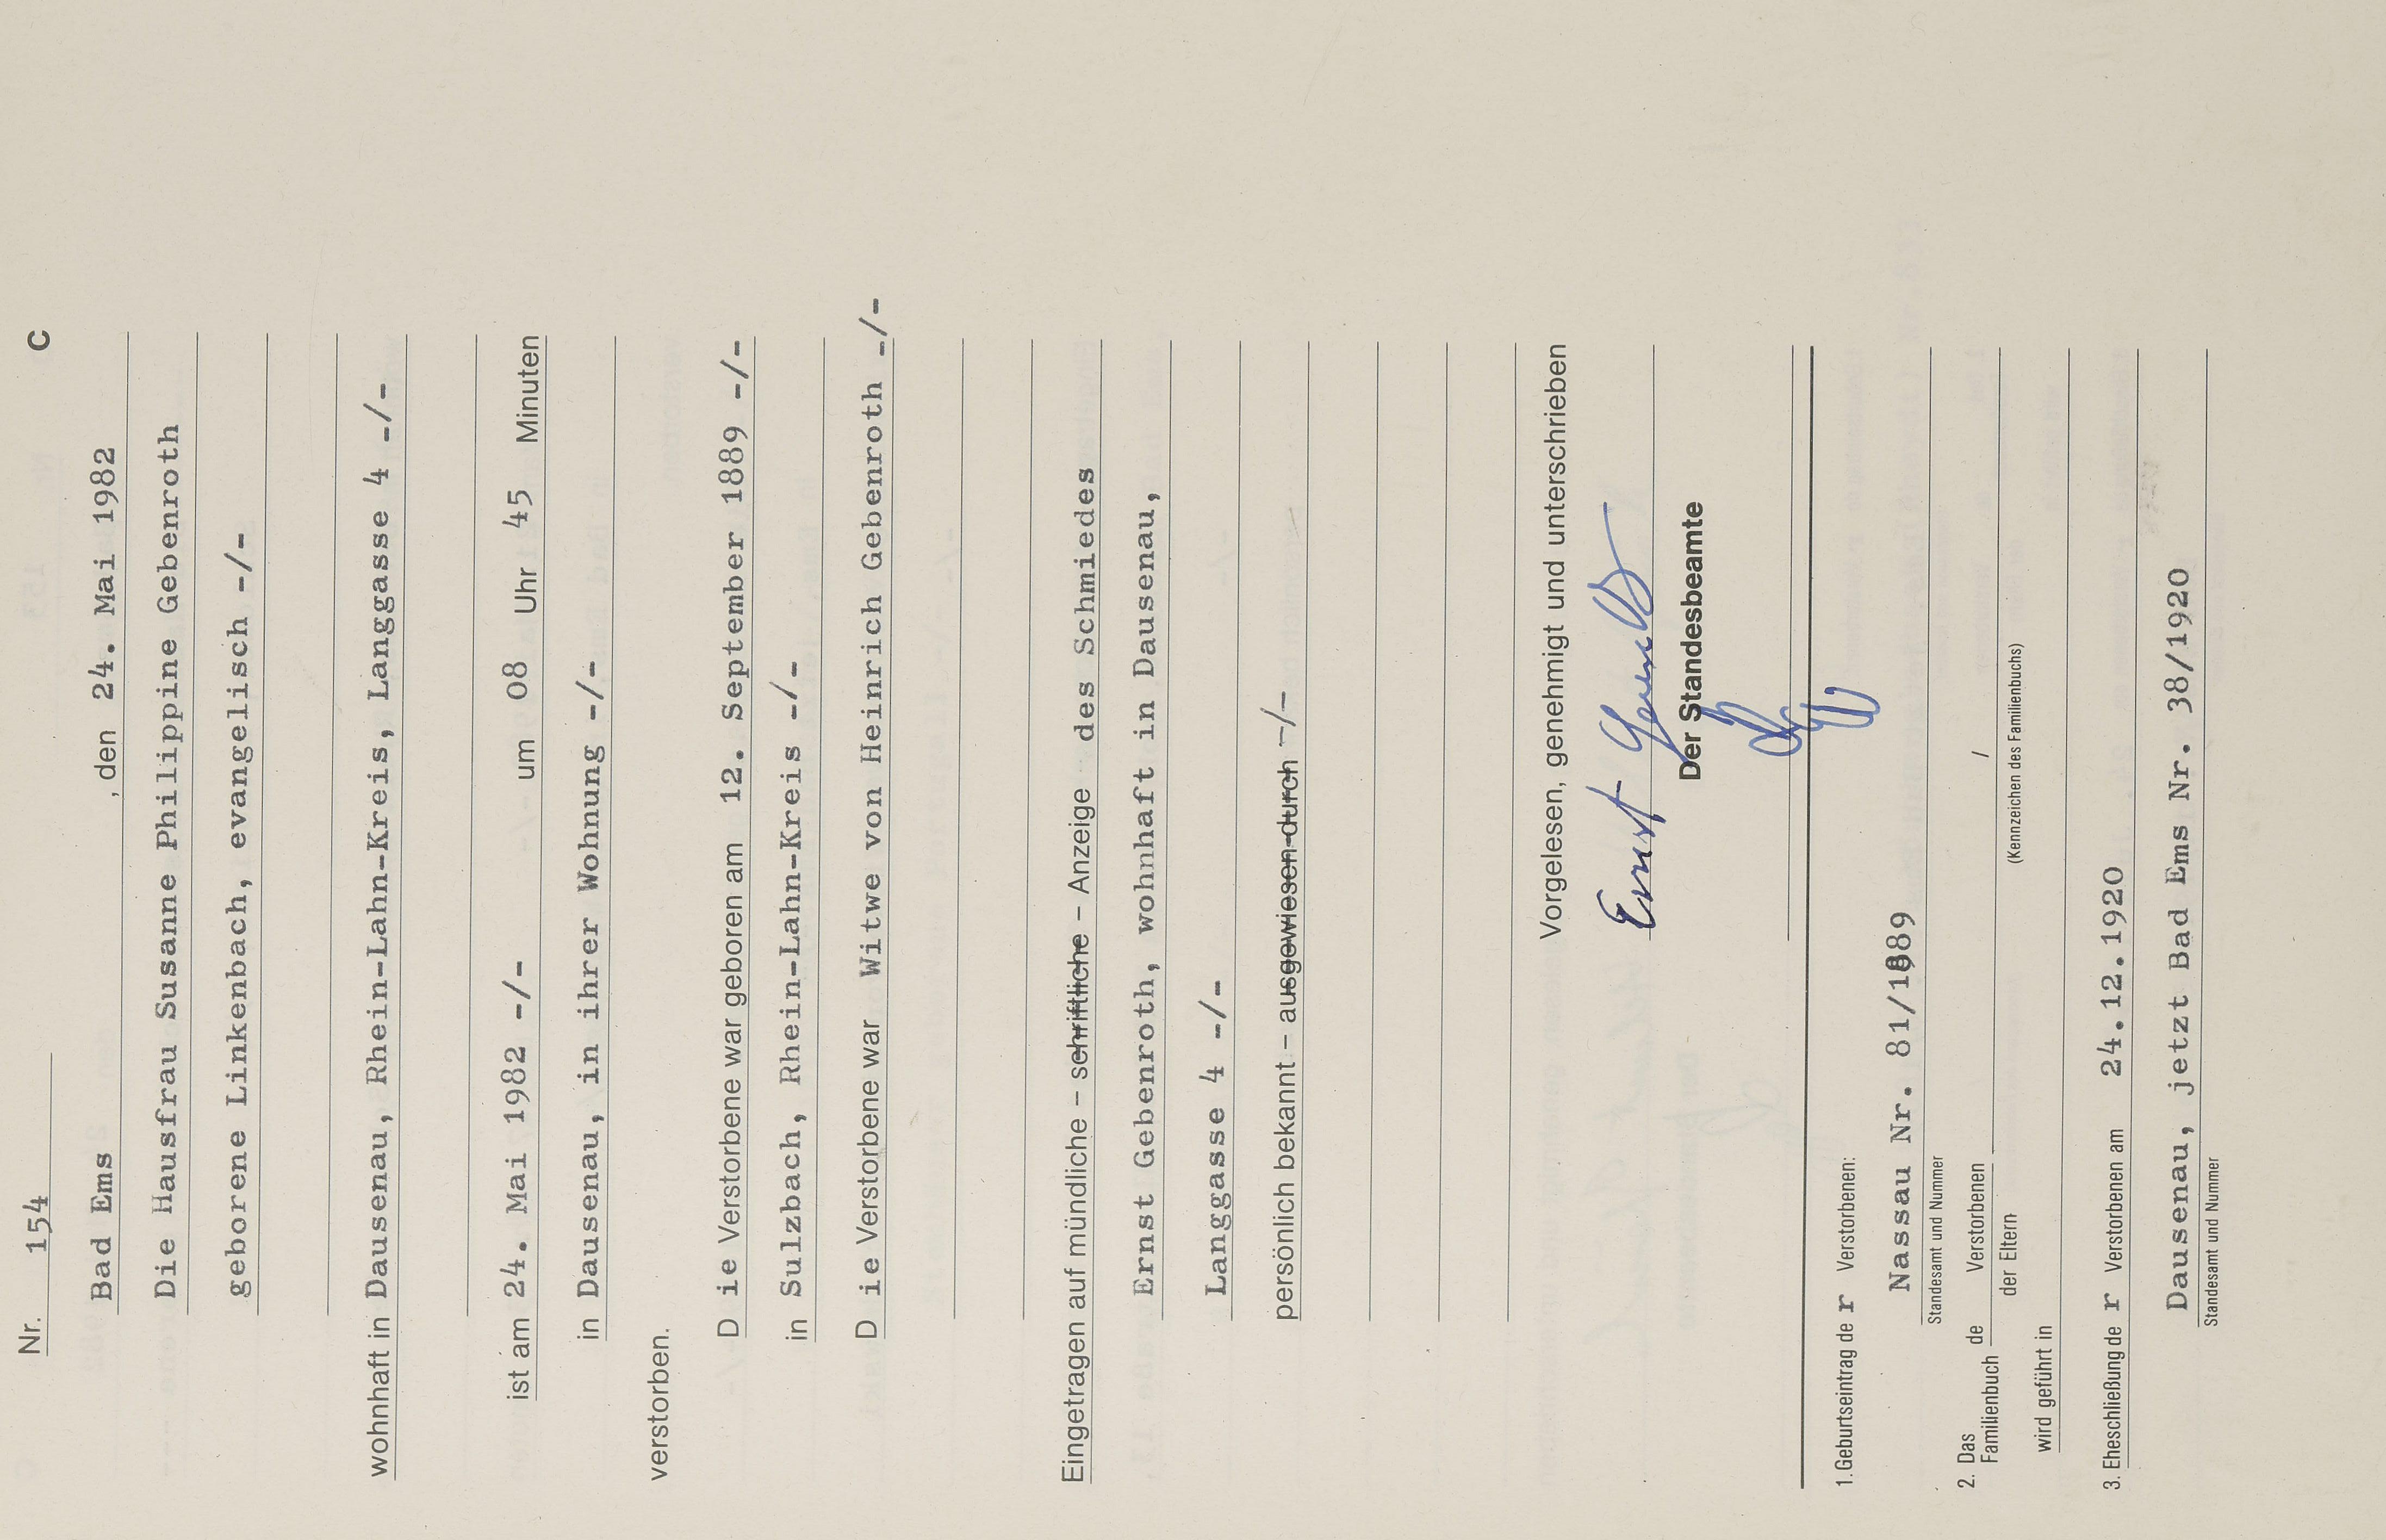 Nr. 154 C
Bad Ems , den 24. Mai 1982
Die Hausfrau Susanne Philippine Gebenroth
geborene Linkenbach, evangelisch -/-
wohnhaft in Dausenau, Rhein-Lahn-Kreis, Langgasse 4 -/-
ist am 24. Mai 1982 -/- um 08 Uhr 45 Minuten
in Dausenau, in ihrer Wohnung -/-
verstorben.
D ie Verstorbene war geboren am 12. September 1889 -/-
in Sulzbach, Rhein-Lahn-Kreis -/-
D ie Verstorbene war Witwe von Heinrich Gebenroth -/-
Eingetragen auf mündliche – schriftliche – Anzeige des Schmiedes
Ernst Gebenroth, wohnhaft in Dausenau,
Langgasse 4 -/-
persönlich bekannt – ausgewiesen durch -/-
Vorgelesen, genehmigt und unterschrieben
Ernst
Der Standesbeamte
1.Geburtseintrag de r Verstorbenen:
Nassau Nr. 81/1889
Standesamt und Nummer
2. Das Familienbuch de Verstorbenen /
der Eltern
(Kennzeichen des Familienbuchs)
wird geführt in
3. Eheschließung de r Verstorbenen am 24.12.1920
Dausenau, jetzt Bad Ems Nr. 38/1920
Standesamt und Nummer